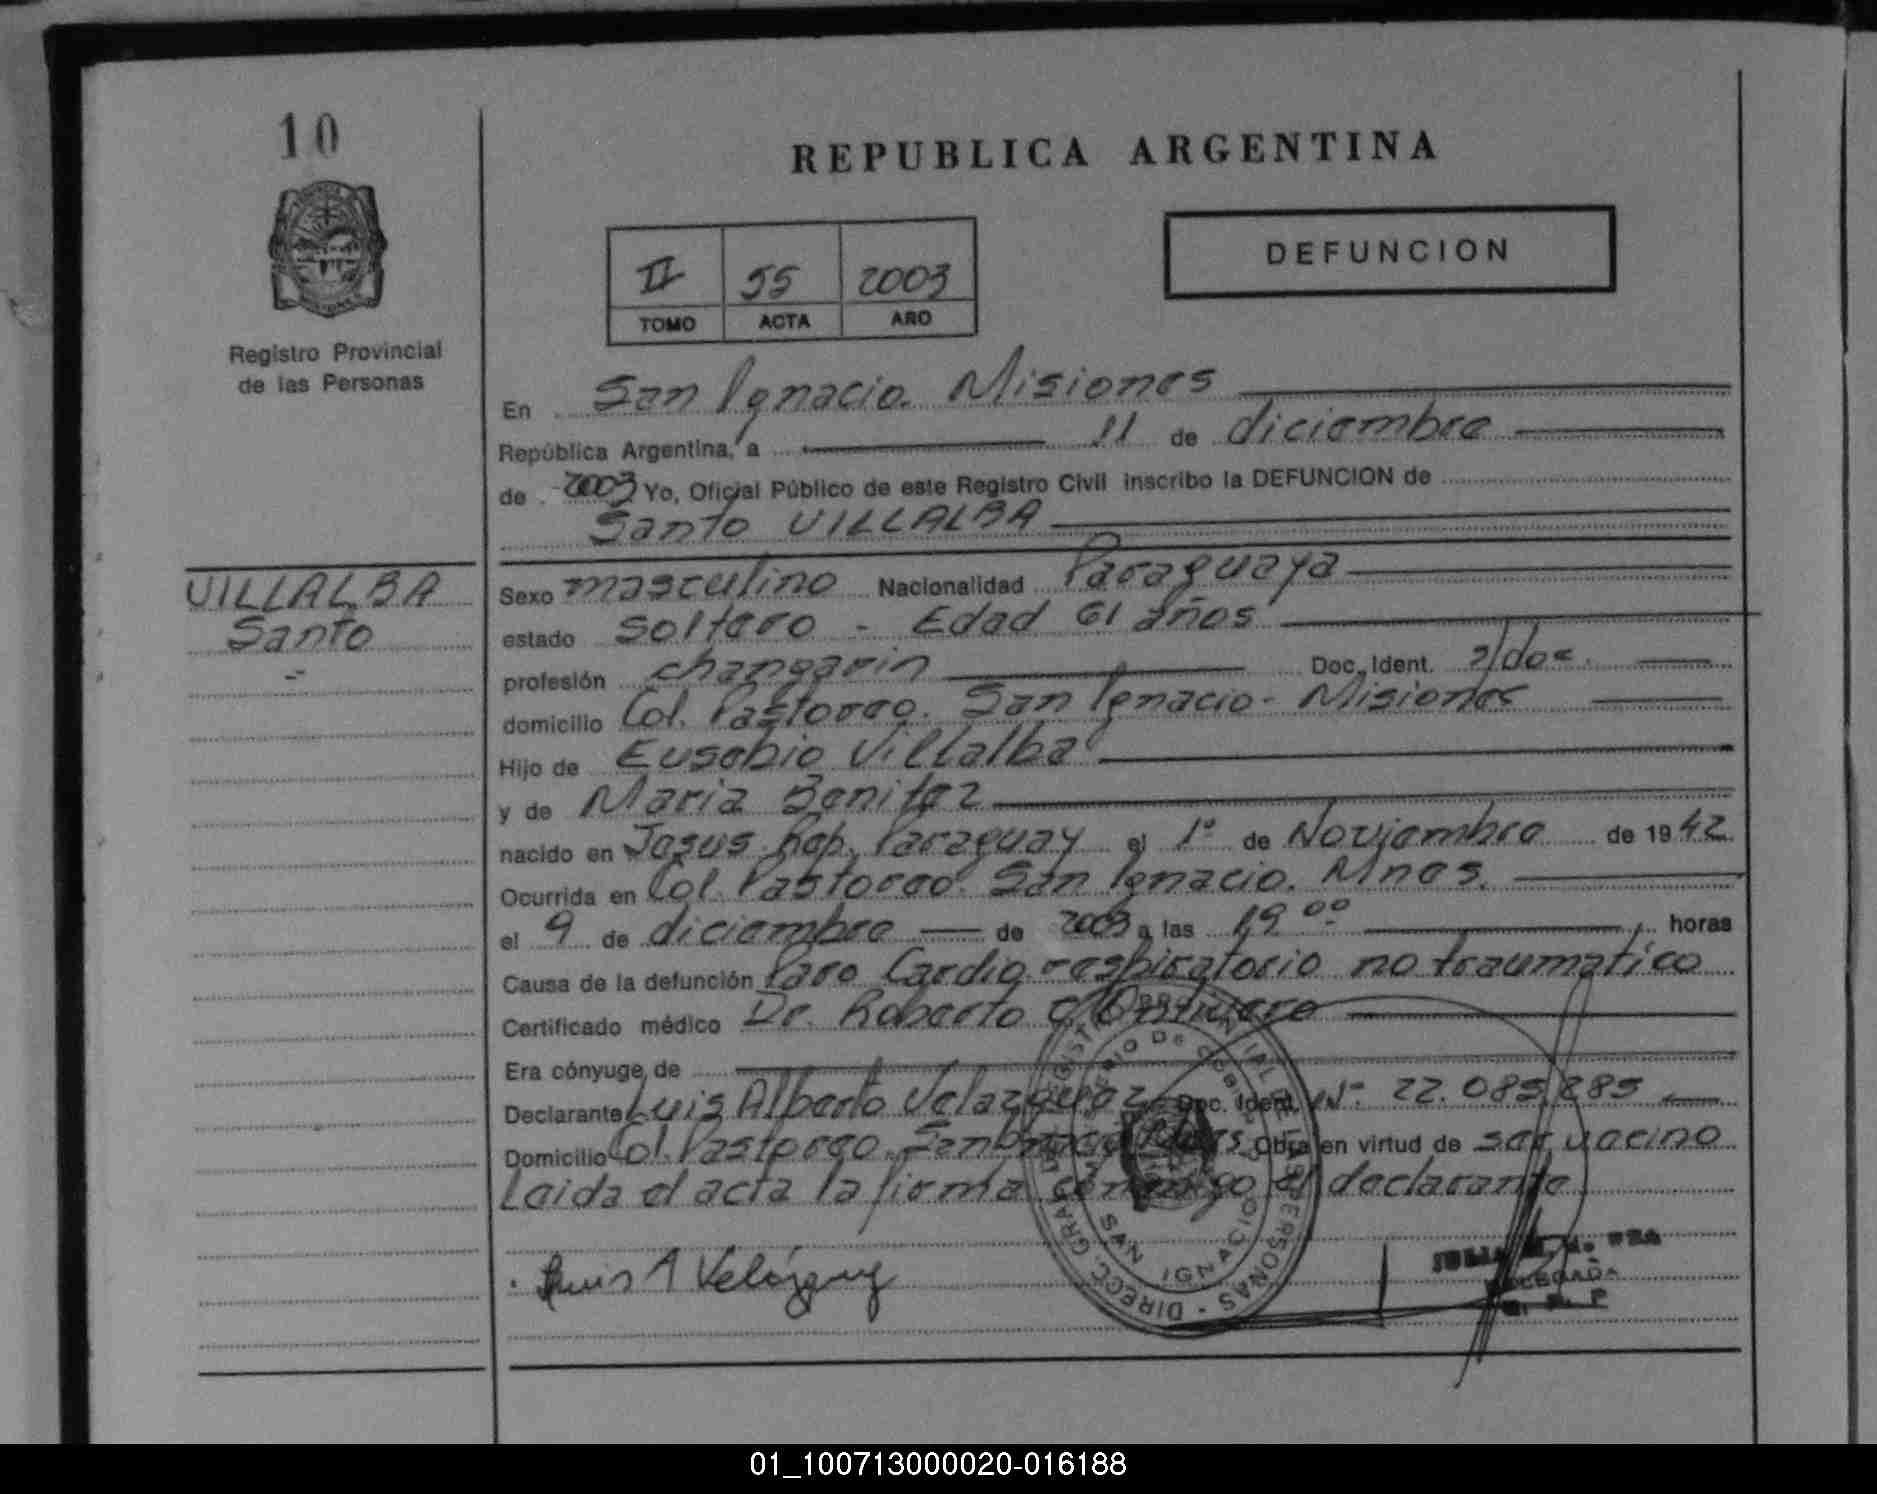 10
REPUBLICA ARGENTINA
DEFUNCION
II 55 2003
TOMO ACTA AÑO
Registro Provincial
de las Personas
En San Ignacio. Misiones
República Argentina, a 11 de diciembre
de 2003 Yo, Oficial Público de este Registro Civil inscribo la DEFUNCION de
Santo VILLALBA
VILLALBA
Santo
Sexo masculino Nacionalidad Paraguaya
estado soltero - Edad 61 años
profesión changarin Doc. Ident. s/doc.
domicilio Col. Pastoreo. San Ignacio - Misiones
Hijo de Eusebio Villalba
y de Maria Benitez
nacido en Jesus Rep. Paraguay el 1º de Noviembre de 1942
Ocurrida en Col. Pastoreo. San Ignacio. Mnes.
el 9 de diciembre de 2003 a las 19 00 horas
Causa de la defunción Paro Cardio respiratorio no traumatico
Certificado médico Dr. Roberto
Era cónyuge de
Declarante Luis Alberto Velazquez Doc. Ident. Nº 22.085.285
Domicilio Col. Pastoreo. San Ignacio Mnes. Obra en virtud de ser vecino
Leida el acta la firma conmigo el declarante
Luis A Velázquez
DIRECC. GRAL. REGISTRO PROVINCIAL DE LAS PERSONAS
MINISTERIO DE GOBIERNO
SAN IGNACIO
DELEGADA
R. P. P
01_100713000020-016188